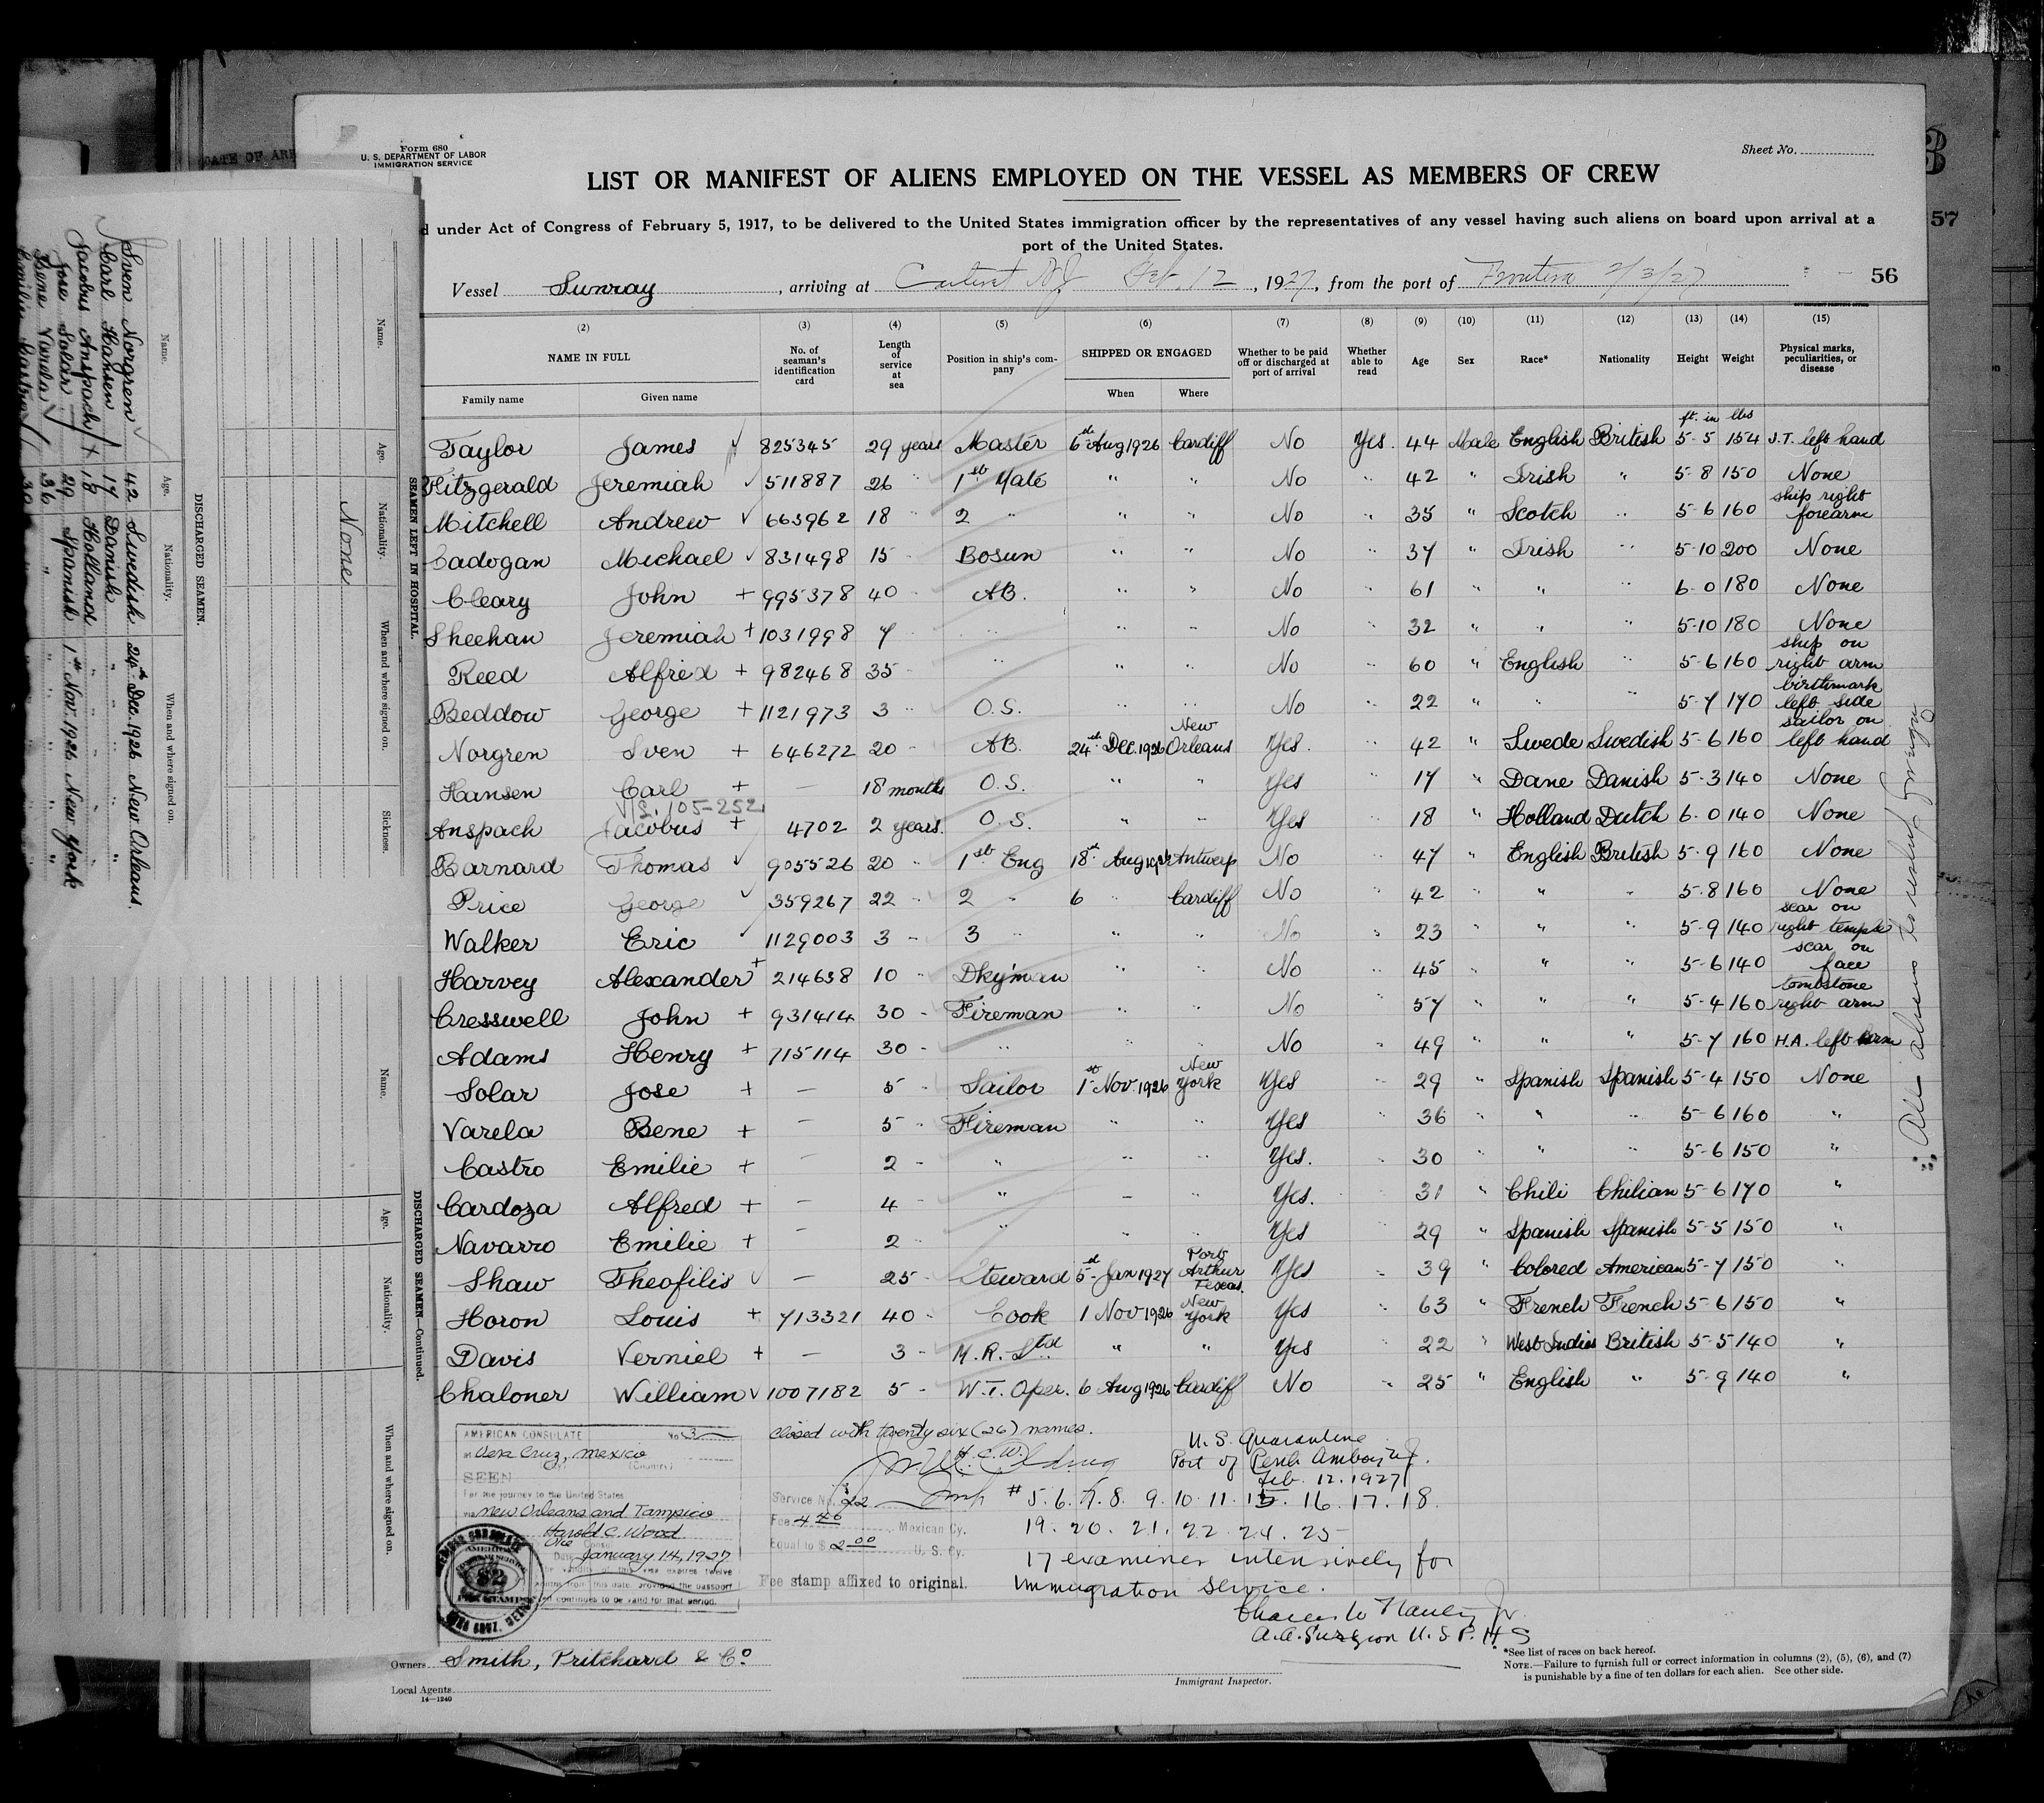 Form 680
U. S. DEPARTMENT OF LABOR
IMMIGRATION SERVICE
Sheet No.
LIST OR MANIFEST OF ALIENS EMPLOYED ON THE VESSEL AS MEMBERS OF CREW
under Act of Congress of February 5, 1917, to be delivered to the United States immigration officer by the representatives of any vessel having such aliens on board upon arrival at a
port of the United States.
57
Vessel Sunray, arriving at Carteret NJ Feb. 12, 1927, from the port of Frontera 2/3/27
56
(2) (3) (4) (5) (6) (7) (8) (9) (10) (11) (12) (13) (14) (15)
NAME IN FULL No. of seaman's identification card Length of service at sea Position in ship's company SHIPPED OR ENGAGED Whether to be paid off or discharged at port of arrival Whether able to read Age Sex Race* Nationality Height Weight Physical marks, peculiarities, or disease
Family name Given name When Where
ft. in lbs
Taylor James 825345 29 years Master 6th Aug 1926 Cardiff No Yes. 44 Male English British 5-5 154 J.T. left hand
Fitzgerald Jeremiah 511887 26 " 1st Mate " " No " 42 " Irish " 5-8 150 None
Mitchell Andrew 663962 18 2 " " " No " 35 " Scotch " 5-6 160 ship right forearm
Cadogan Michael 831498 15 Bosun " " No " 37 " Irish " 5-10 200 None
Cleary John + 995378 40 AB. " " No " 61 " " " 6-0 180 None
Sheehan Jeremiah + 1031998 7 " " " No " 32 " " " 5-10 180 None
Reed Alfred + 982468 35 " " " No " 60 " English " 5-6 160 ship on right arm
Beddow George + 1121973 3 " O.S. " " No " 22 " " " 5-7 170 birthmark left side
Norgren Sven + 646272 20 AB. 24th Dec. 1926 New Orleans Yes. " 42 " Swede Swedish 5-6 160 sailor on left hand
Hansen Carl + — 18 months O.S. " " Yes " 17 " Dane Danish 5-3 140 None
105-252
Anspach Jacobus + 4702 2 years. O.S. " " Yes " 18 " Holland Dutch 6-0 140 None
Barnard Thomas 905526 20 1st Eng 18th Aug 1926 Antwerp No " 47 " English British 5-9 160 None
Price George 359267 22 2 " 6 " Cardiff No " 42 " " " 5-8 160 None
Walker Eric 1129003 3 3 " " " No " 23 " " " 5-9 140 scar on right temple
Harvey Alexander + 214638 10 Dkyman " " No " 45 " " " 5-6 140 scar on face
Cresswell John + 931414 30 Fireman " " No " 57 " " " 5-4 160 tombstone right arm
Adams Henry + 715114 30 " " " No " 49 " " " 5-7 160 H.A. left arm
Solar Jose + — 5 Sailor 1st Nov 1926 New York Yes " 29 " Spanish Spanish 5-4 150 None
Varela Bene + — 5 Fireman " " Yes " 36 " " " 5-6 160 "
Castro Emilie + — 2 " " " Yes. " 30 " " " 5-6 150 "
Cardoza Alfred + — 4 " " " Yes. " 31 " Chili Chilian 5-6 170 "
Navarro Emilie + — 2 " " " Yes " 29 " Spanish Spanish 5-5 150 "
Shaw Theofilis — 25 Steward 5th Jan 1927 Port Arthur Texas. Yes " 39 " Colored American 5-7 150 "
Horon Louis + 713321 40 Cook 1 Nov 1926 New York Yes " 63 " French French 5-6 150 "
Davis Verniel + — 3 M.R. Std " " Yes " 22 " West Indies British 5-5 140 "
Chaloner William 1007182 5 W.T. Oper. 6 Aug 1926 Cardiff No " 25 " English " 5-9 140 "
AMERICAN CONSULATE No 3
at Vera Cruz, Mexico
(City) (Country)
SEEN
For the journey to the United States
via New Orleans and Tampico
Harold C. Wood
Vice Consul
Date January 14, 1927
The validity of this visa expires twelve
months from this date, provided the passport
continues to be valid for that period.
closed with twenty six (26) names.
H.C.W.
Service No. 22
Fee 4 Mexican Cy.
Equal to $ 2 00 U. S. Cy.
Fee stamp affixed to original.
U.S. Quarantine
Port of Perth Amboy NJ.
Feb. 12. 1927
# 5. 6. 7. 8. 9. 10. 11. 15. 16. 17. 18.
19. 20. 21. 22. 24. 25
17 examined intensively for
immigration service.
A.A. Surgeon U.S.P.H.S
Owners Smith, Pritchard & Co.
Local Agents
14—1240
Immigrant Inspector.
*See list of races on back hereof.
NOTE.—Failure to furnish full or correct information in columns (2), (5), (6), and (7)
is punishable by a fine of ten dollars for each alien. See other side.
SEAMEN LEFT IN HOSPITAL.
Name. Age. Nationality. When and where signed on. Sickness.
None
DISCHARGED SEAMEN.
Name. Age. Nationality. When and where signed on.
Sven Norgren 42 Swedish 24th Dec. 1926 New Orleans.
Carl Hansen 17 Danish " " "
Jacobus Anspach 18 Holland " " "
Jose Solar 29 Spanish 1st Nov. 1926 New York
Bene Varela 36 " " " "
Emilie Castro 30 " " "
DISCHARGED SEAMEN—Continued.
Name. Age. Nationality. When and where signed on.